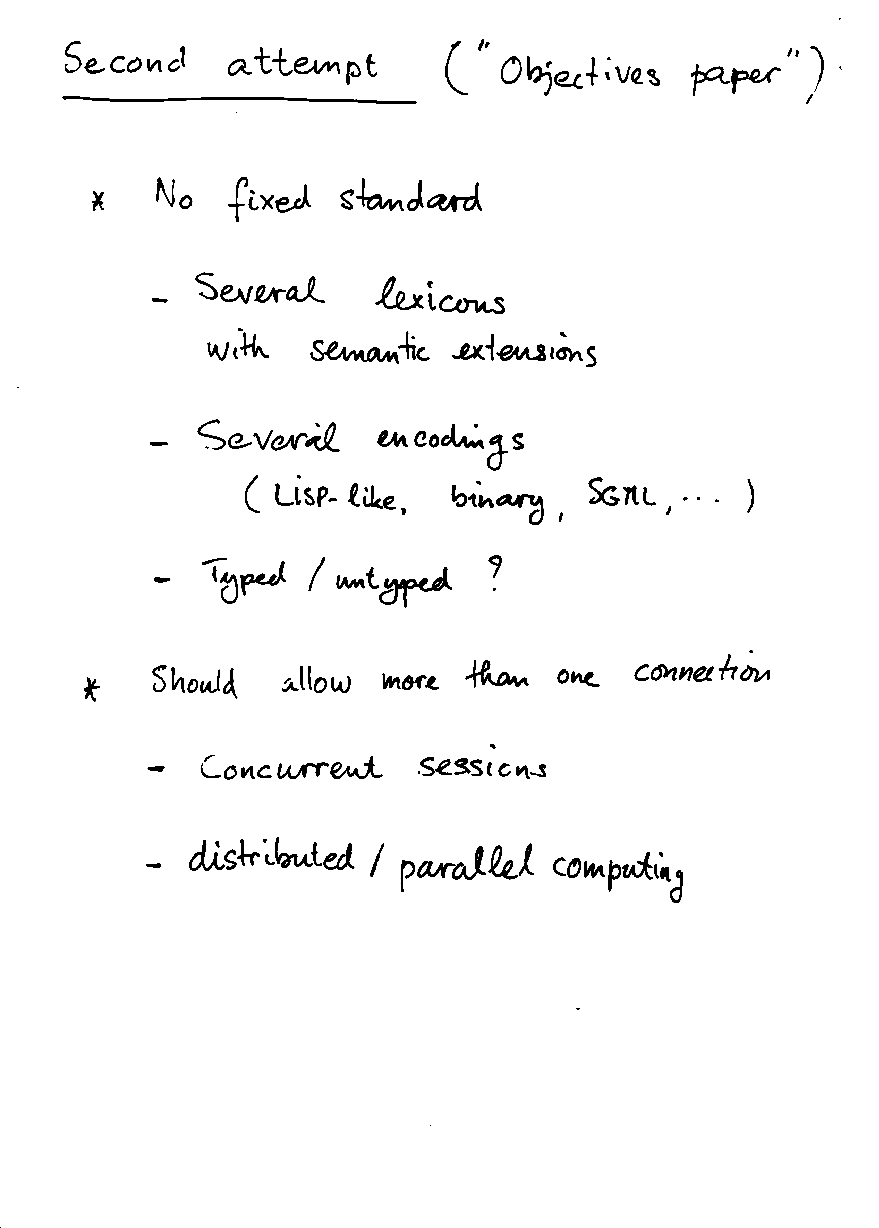 Second attempt ("Objectives paper")
* No fixed standard
- Several lexicons
with semantic extensions
- Several encodings
(LISP-like, binary, SGML, ... )
- Typed / untyped ?
* Should allow more than one connection
- Concurrent sessions
- distributed / parallel computing